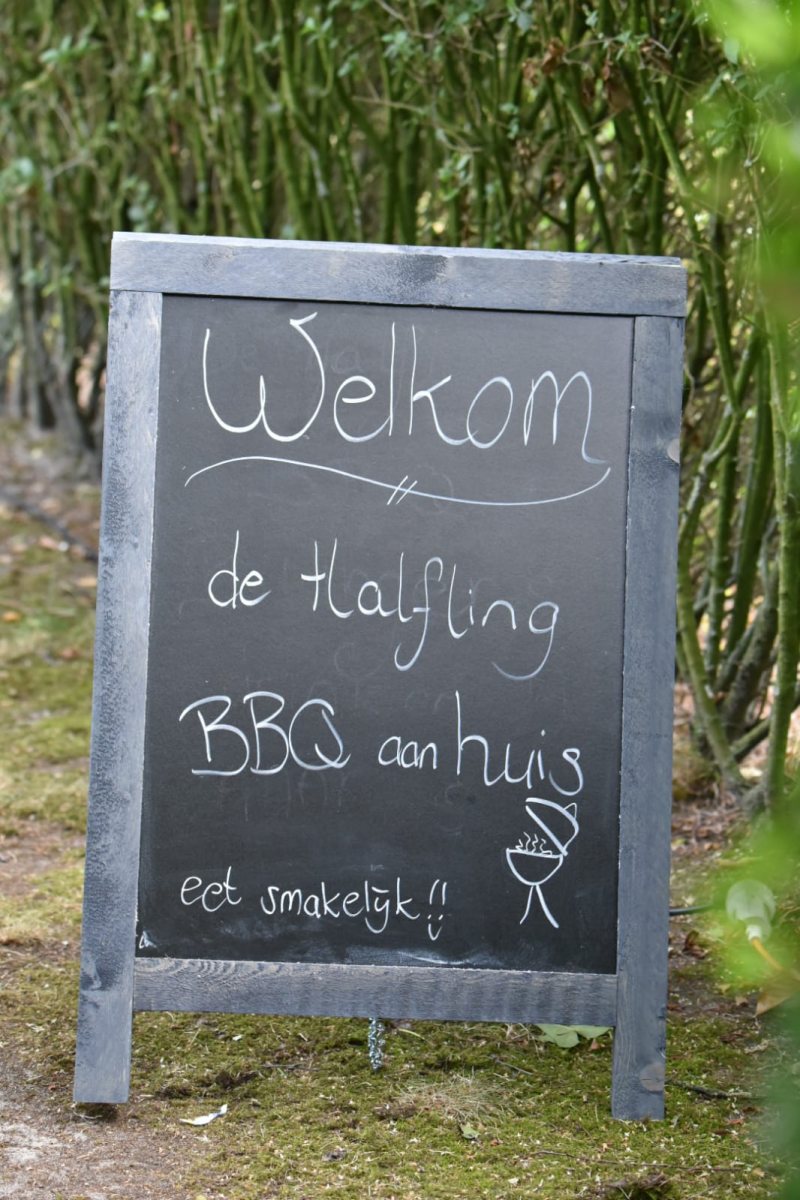 Welkom
de Halfling
BBQ aan huis
eet smakelijk!!